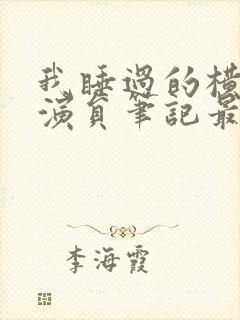 我睡過的橫
演員筆記最
李海霞